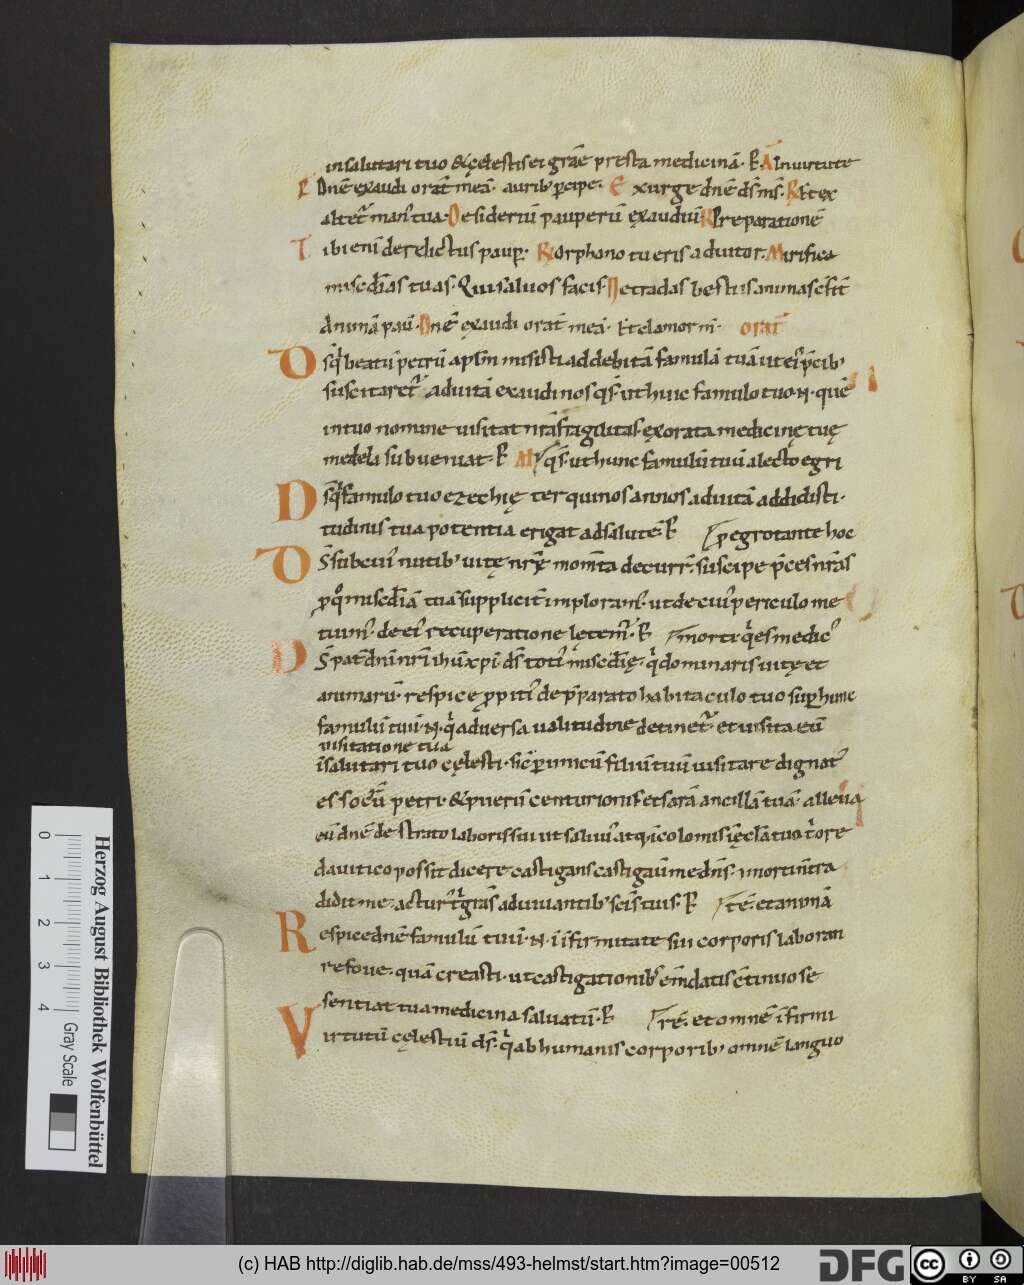 insalutari tuo & cęlestis ei grāe presta medicinā. P A In uirtute
P Dn̄e exaudi orat̄ meā. aurib' p̱cipe. E xurge dn̄e ds̄ ms̄. R Et ex
altet᷑ man' tua. Desideriū pauperū exaudiui R Preparationē
T ibi enī derelictus paup̱. R Orphano tu eris adiutor. Mirifica
misc̄dias tuas. Qui saluos facis. Ne tradas bestiis animas c̄fit̄
Animā pau. Dn̄e exaudi orat̄ meā. Et clamor m̄. orat̄
D s̄ q̄ beatū petrū apl̄m misisti ad debitā famulā tuā ut ei' p̄cib'
suscitaret᷑ ad uitā exaudi nos qs̄. ut hunc famulo tuo N. quē
in tuo nomine uisitat nr̄a fragilitas. exorata medicinę tuę
medela subueniat. P Al qs̄. ut hunc famulū tuū a lecto egri
D s̄ q̄ famulo tuo ezechię ter quinos annos ad uitā addidisti.
tudinis tua potentia erigat ad salutē. P p egrotante hoc
D S̄ sub cui' nutib' uitę nr̄ę mom̄ta decurr̄. suscipe p̄ces nr̄as
p q̊ misc̄diā tuā supplicit̄ imploram'. ut de cui' periculo me
tuim'. de ei' recuperatione letem'. P morti. q̄es medic'
D S̄ pat̄ dn̄i nr̄i ihū xp̄i. ds̄ toti' misc̄dię. q̄ dominaris uitę et
animarū. respice p̱piti' de p̄parato habitaculo tuo sup̱ hunc
famulū tuū. N. q̄ aduersa ualitudine detinet᷑. et uisita eū
uisitatione tua
ī salutari tuo cęlesti. sic̄ p̱ unicū filiū tuū uisitare dignat'
es socrū petri. & puerū centurionis et sarā ancillā tuā. alleua
eū dn̄e de strato laboris sui ut saluu' atq; incolomis ī ęcl̄a tua t̄ ore
dauitico possit dicere castigans castigauī me dn̄s. 7 morti n̄ tra
didit me. actur' t̄ grās ad uiuantib' sc̄is tuis. P tē. et animā
R espice dn̄e famulū tuū. N. ī īfirmitate sui corporis laboran
refoue. quā creasti. ut castigationib' em̄datus c̄tinuo se
sentiat tua medicina saluatū. P re. et omnē īfirmi
V irtutū cęlestiū ds̄. q̄ ab humanis corporib' omnē languo
Herzog August Bibliothek Wolfenbüttel
Gray Scale
0 1 2 3 4
(c) HAB http://diglib.hab.de/mss/493-helmst/start.htm?image=00512
DFG
cc BY SA